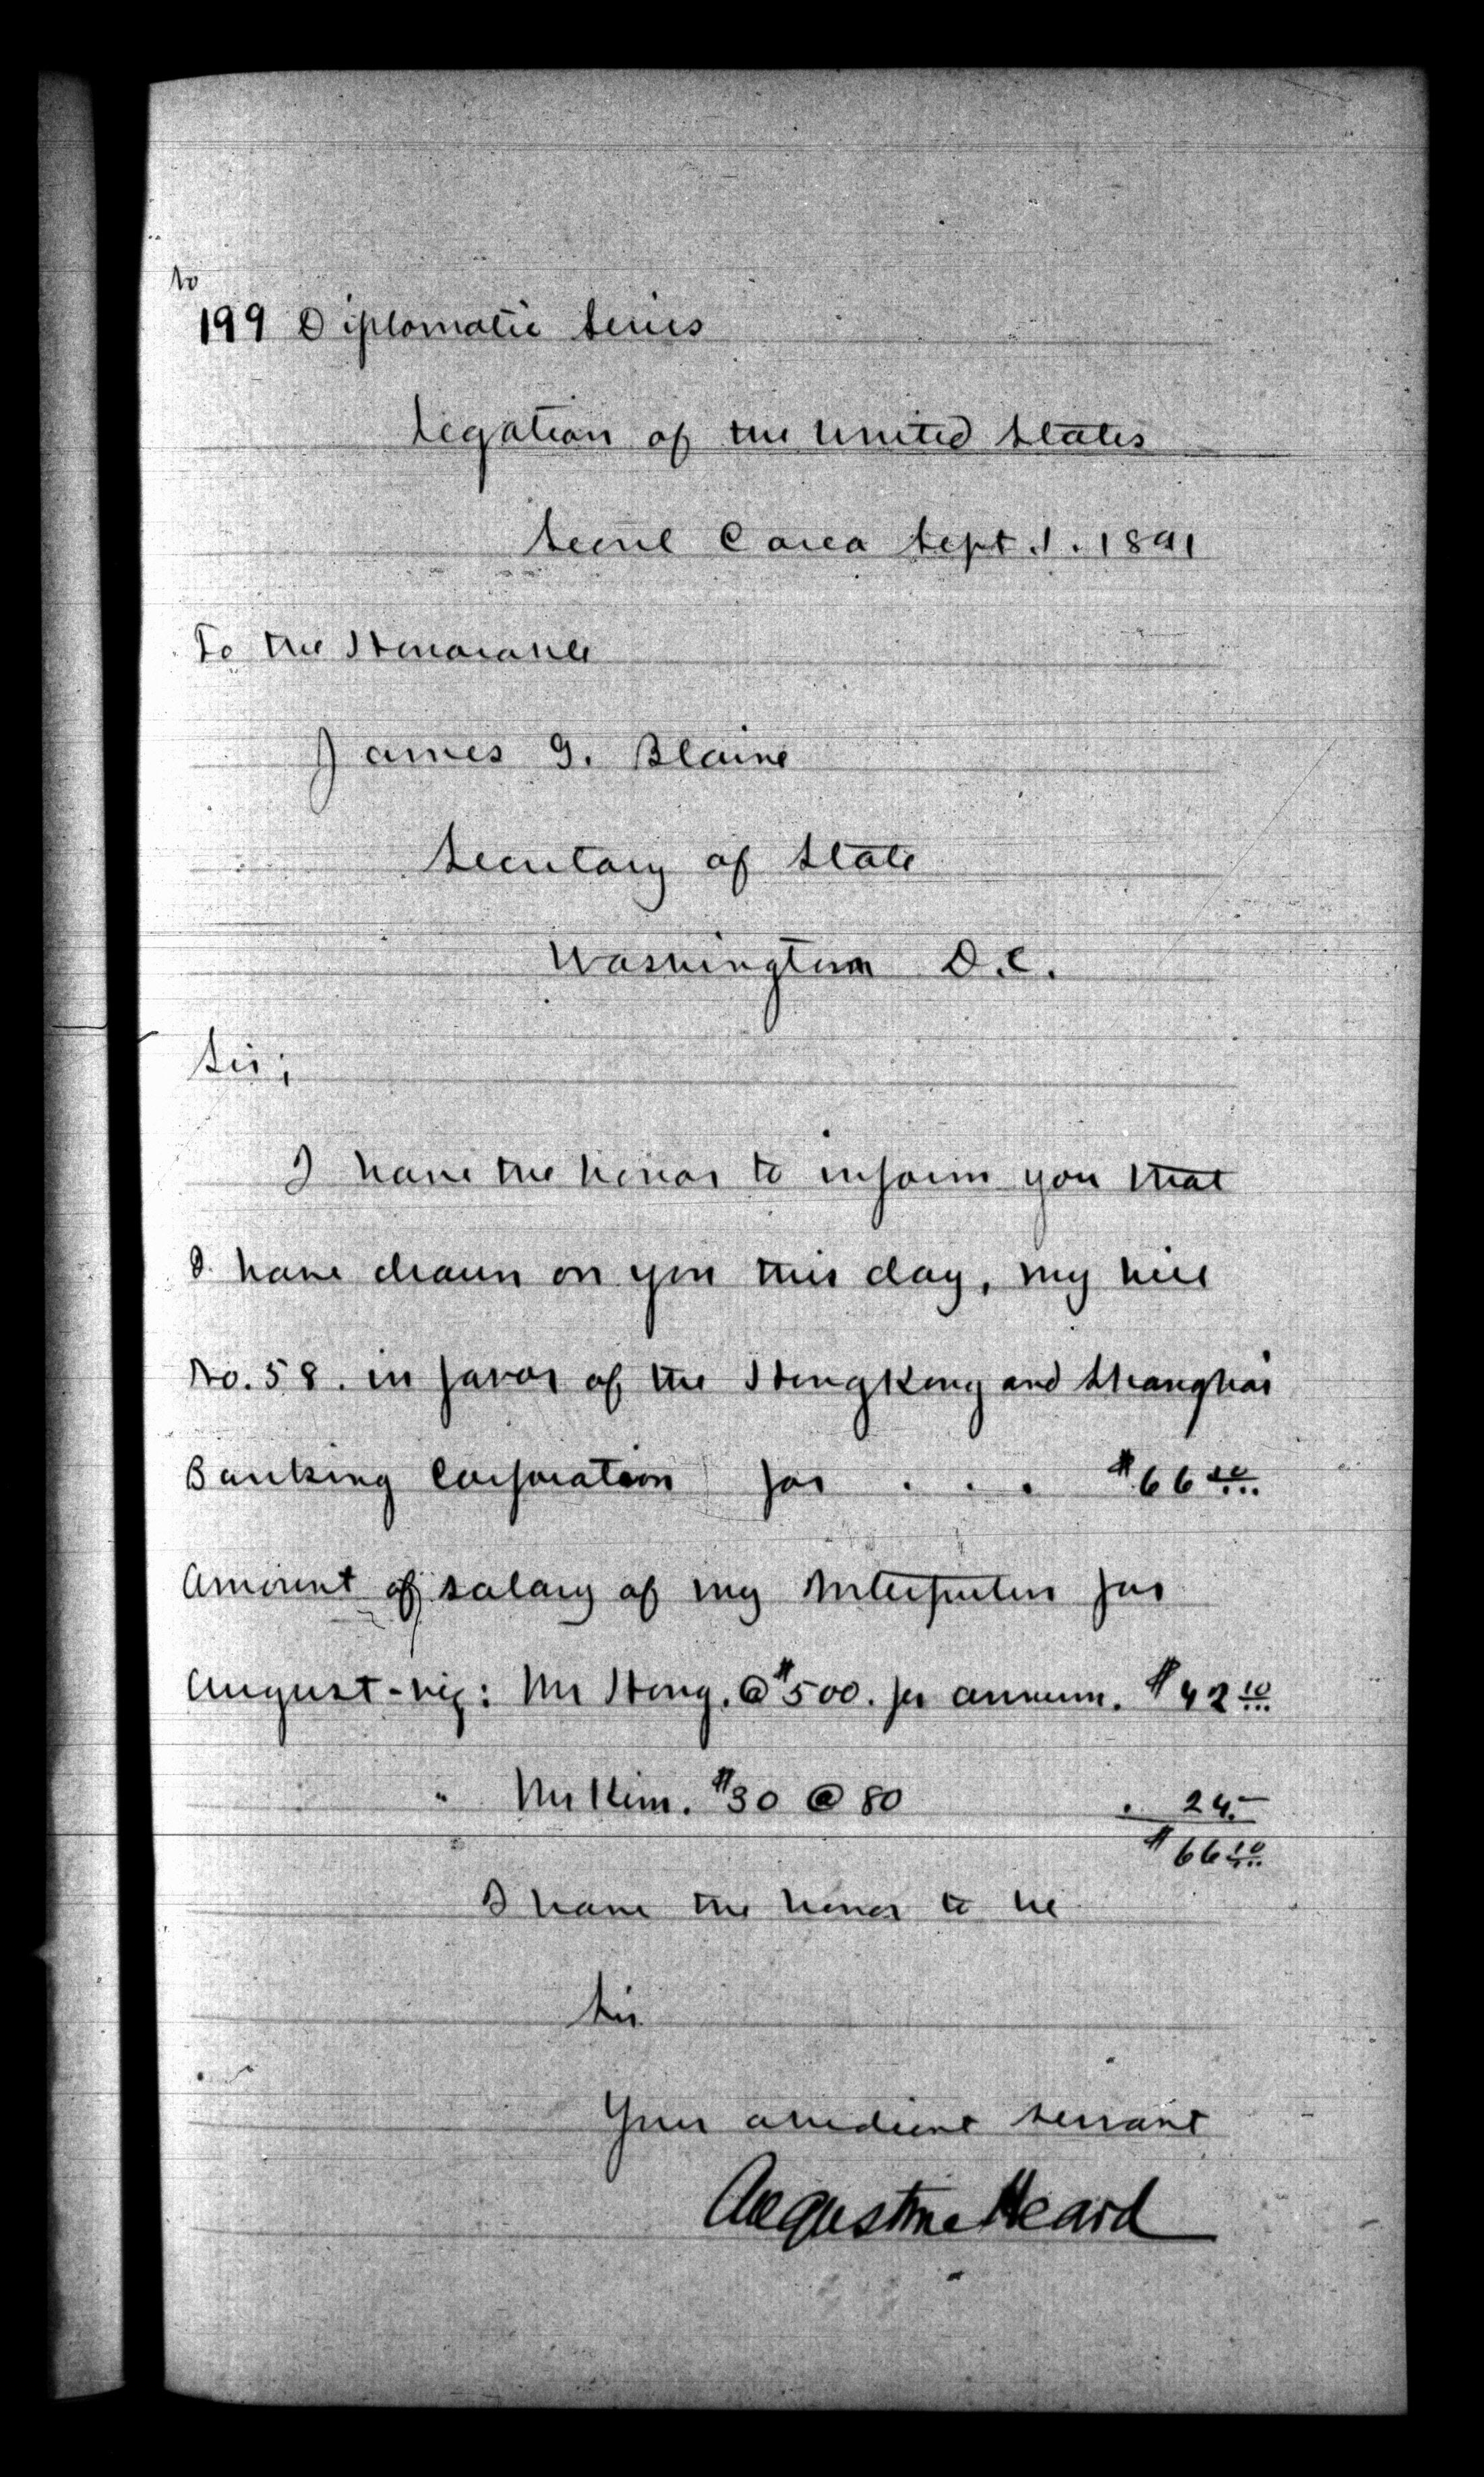 No
199 Diplomatic Series
Legation of the United States
Seoul Corea Sept. 1. 1891
To the Honorable
James G. Blaine
Secretary of State
Washington D.C.
Sir;
I have the honor to inform you that
I have drawn on you this day, my bill
No. 58. in favor of the HongKong and Shanghai
Banking Corporation for . . . $66 10/...
Amount of salary of my Interpreters for
August-viz: Mr Hong. @ $500. per annum. $42 10/...
" Mr Kim. $30 @ 80 . 24.-
$66 10/...
I have the honor to be
Sir
Your obedient servant
Augustine Heard